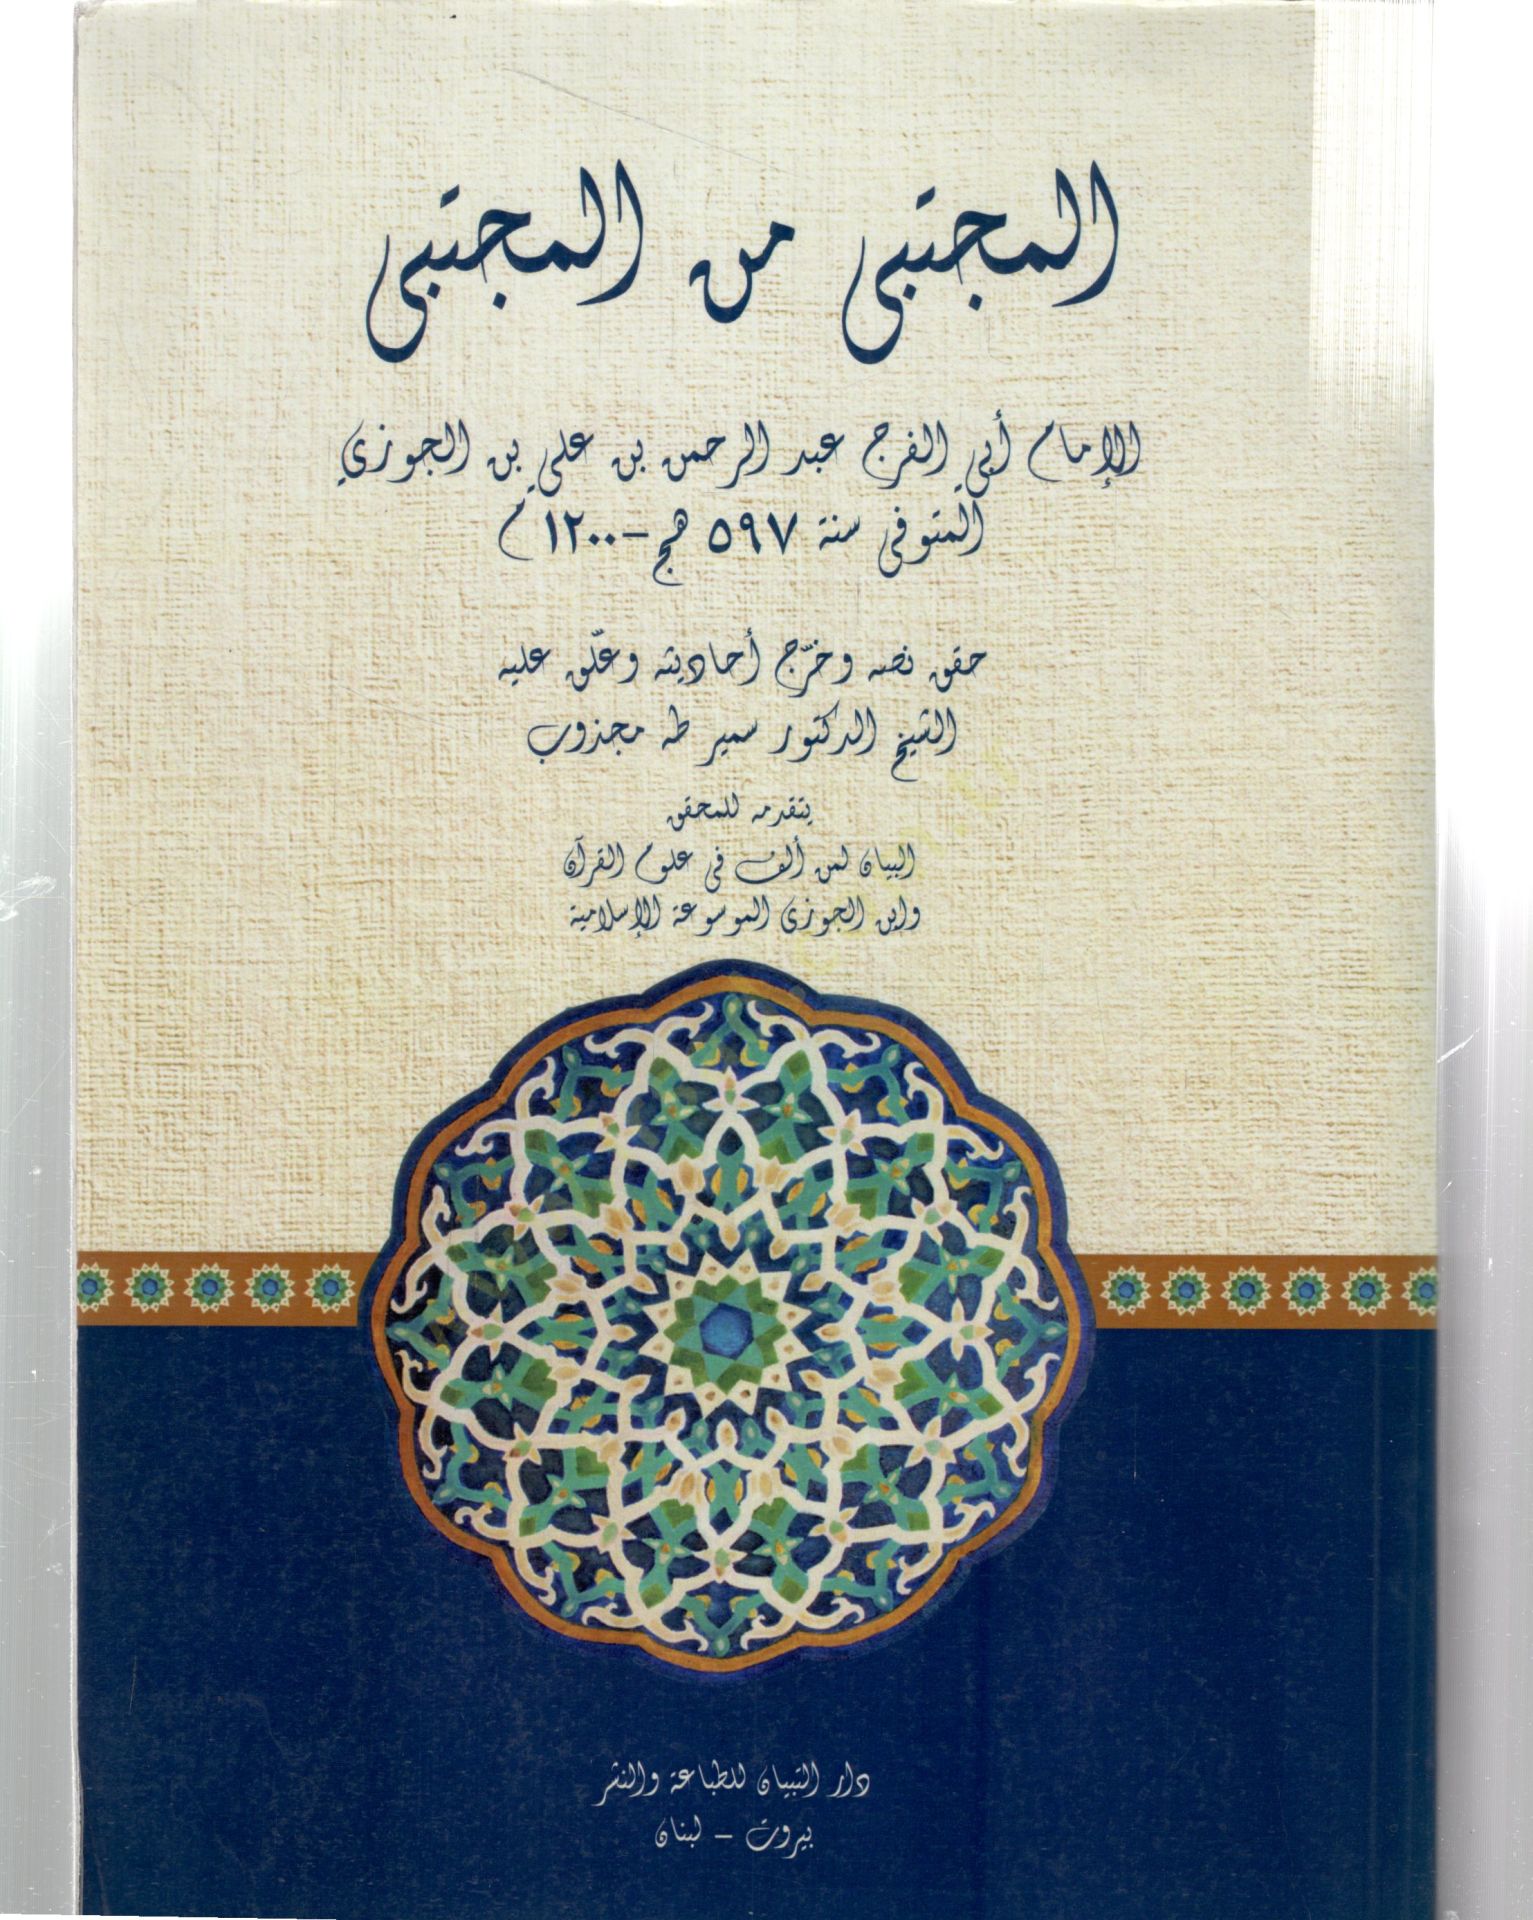 المجتبى من المجتبى
الإمام أبي الفرج عبد الرحمن بن علي بن الجوزي
المتوفى سنة ٥٩٧ هج - ١٢٠٠ م
حقق نصه وخرّج أحاديثه وعلّق عليه
الشيخ الدكتور سمير طه مجذوب
يتقدمه للمحقق
البيان لمن ألف في علوم القرآن
وابن الجوزى الموسوعة الإسلامية
دار التبيان للطباعة والنشر
بيروت - لبنان